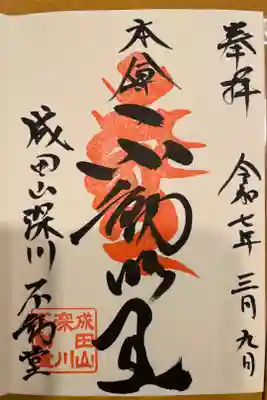 奉拝
令和七年 三月九日
本尊
不動明王
成田山深川 不動堂
成田山
深川